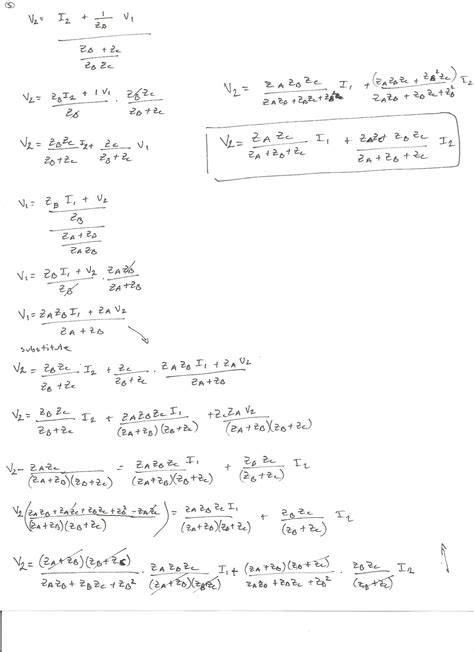 ⑤
V₂ = (I₂ + (1/Z_B) V₁) / ((Z_B + Z_C)/(Z_B Z_C))
V₂ = (Z_B I₂ + 1 V₁)/Z_B · (Z_B Z_C)/(Z_B + Z_C)
V₂ = (Z_B Z_C)/(Z_B + Z_C) I₂ + Z_C/(Z_B + Z_C) V₁
V₁ = ((Z_B I₁ + V₂)/Z_B) / ((Z_A + Z_B)/(Z_A Z_B))
V₁ = (Z_B I₁ + V₂)/Z_B · (Z_A Z_B)/(Z_A + Z_B)
V₁ = (Z_A Z_B I₁ + Z_A V₂)/(Z_A + Z_B)
substitute
V₂ = (Z_B Z_C)/(Z_B + Z_C) · I₂ + Z_C/(Z_B + Z_C) · (Z_A Z_B I₁ + Z_A V₂)/(Z_A + Z_B)
V₂ = (Z_B Z_C)/(Z_B + Z_C) I₂ + (Z_A Z_B Z_C I₁)/((Z_A + Z_B)(Z_B + Z_C)) + (Z_C Z_A V₂)/((Z_A + Z_B)(Z_B + Z_C))
V₂ - (Z_A Z_C)/((Z_A + Z_B)(Z_B + Z_C)) = (Z_A Z_B Z_C I₁)/((Z_A + Z_B)(Z_B + Z_C)) + (Z_B Z_C)/(Z_B + Z_C) I₂
V₂ ((Z_A Z_B + Z_A Z_C + Z_B Z_C + Z_B² - Z_A Z_C)/((Z_A + Z_B)(Z_B + Z_C))) = (Z_A Z_B Z_C I₁)/((Z_A + Z_B)(Z_B + Z_C)) + (Z_B Z_C)/(Z_B + Z_C) I₂
V₂ = ((Z_A + Z_B)(Z_B + Z_C))/(Z_A Z_B + Z_B Z_C + Z_B²) · (Z_A Z_B Z_C)/((Z_A + Z_B)(Z_B Z_C)) I₁ + ((Z_A + Z_B)(Z_B + Z_C))/(Z_A Z_B + Z_B Z_C + Z_B²) · (Z_B Z_C)/(Z_B + Z_C) I₂
V₂ = (Z_A Z_B Z_C)/(Z_A Z_B + Z_B Z_C + Z_B²) I₁ + ((Z_A Z_B Z_C + Z_B² Z_C)/(Z_A Z_B + Z_B Z_C + Z_B²)) I₂
V₂ = (Z_A Z_C)/(Z_A + Z_B + Z_C) I₁ + (Z_A Z_C + Z_B Z_C)/(Z_A + Z_B + Z_C) I₂